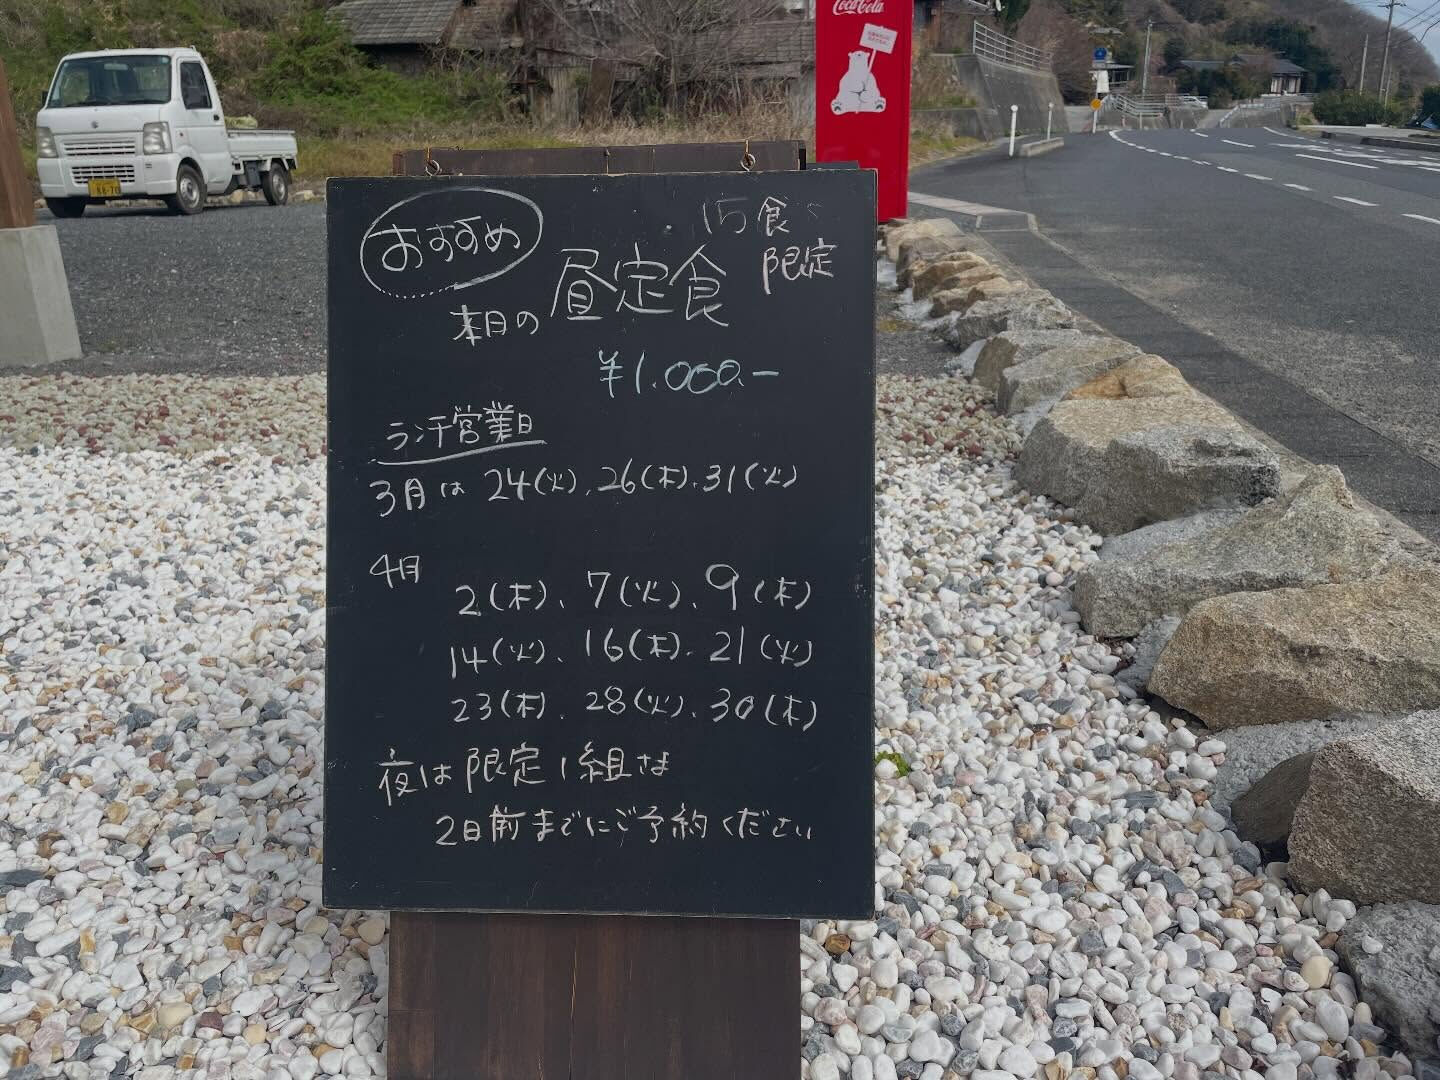 Coca-Cola
おすすめ
15食
限定
本日の 昼定食
¥1.000.-
ランチ営業日
3月は 24(火)、26(木)、31(火)
4月
2(木)、7(火)、9(木)
14(火)、16(木)、21(火)
23(木)、28(火)、30(木)
夜は限定1組さま
2日前までにご予約ください